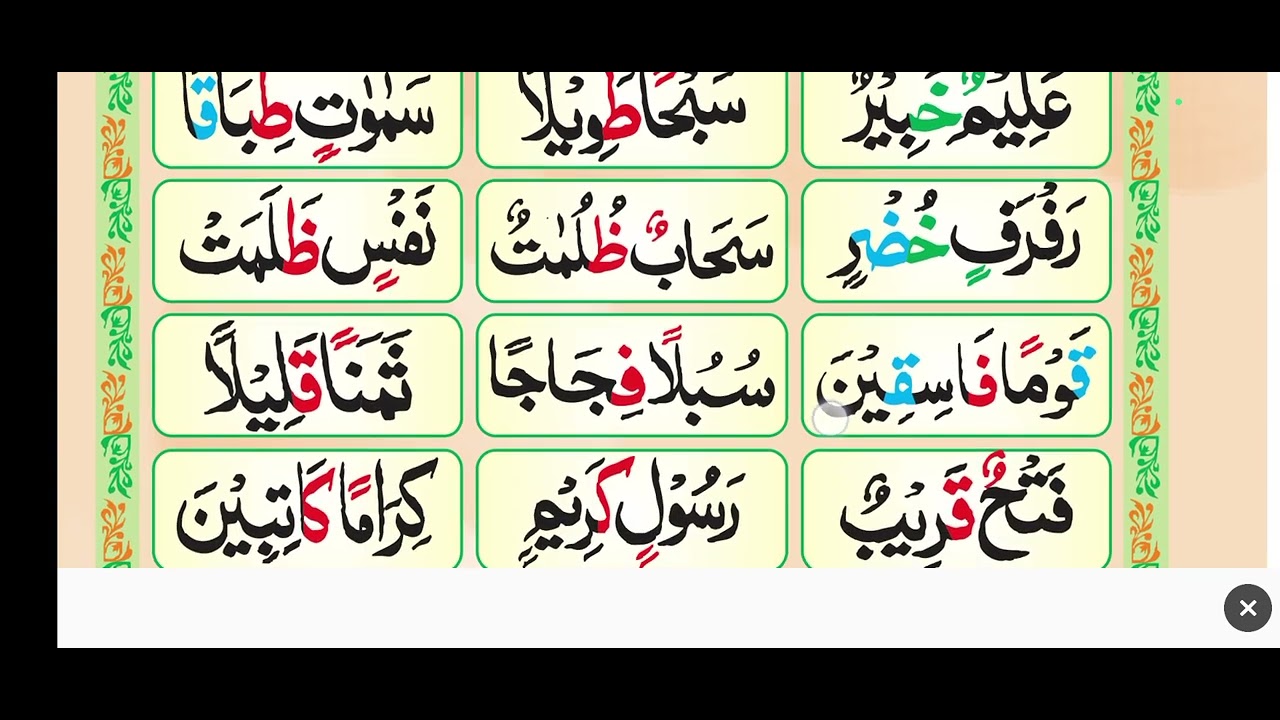 عَلِيْمٌ خَبِيْرٌ سَبْحًا طَوِيْلًا سَمٰوٰتٍ طِبَاقًا
رَفْرَفٍ خُضْرٍ سَحَابٌ ظُلُمٰتٌ نَفْسٍ ظَلَمَتْ
قَوْمًا فَاسِقِيْنَ سُبُلًا فِجَاجًا ثَمَنًا قَلِيْلًا
فَتْحٌ قَرِيْبٌ رَسُوْلٍ كَرِيْمٍ كِرَامًا كَاتِبِيْنَ